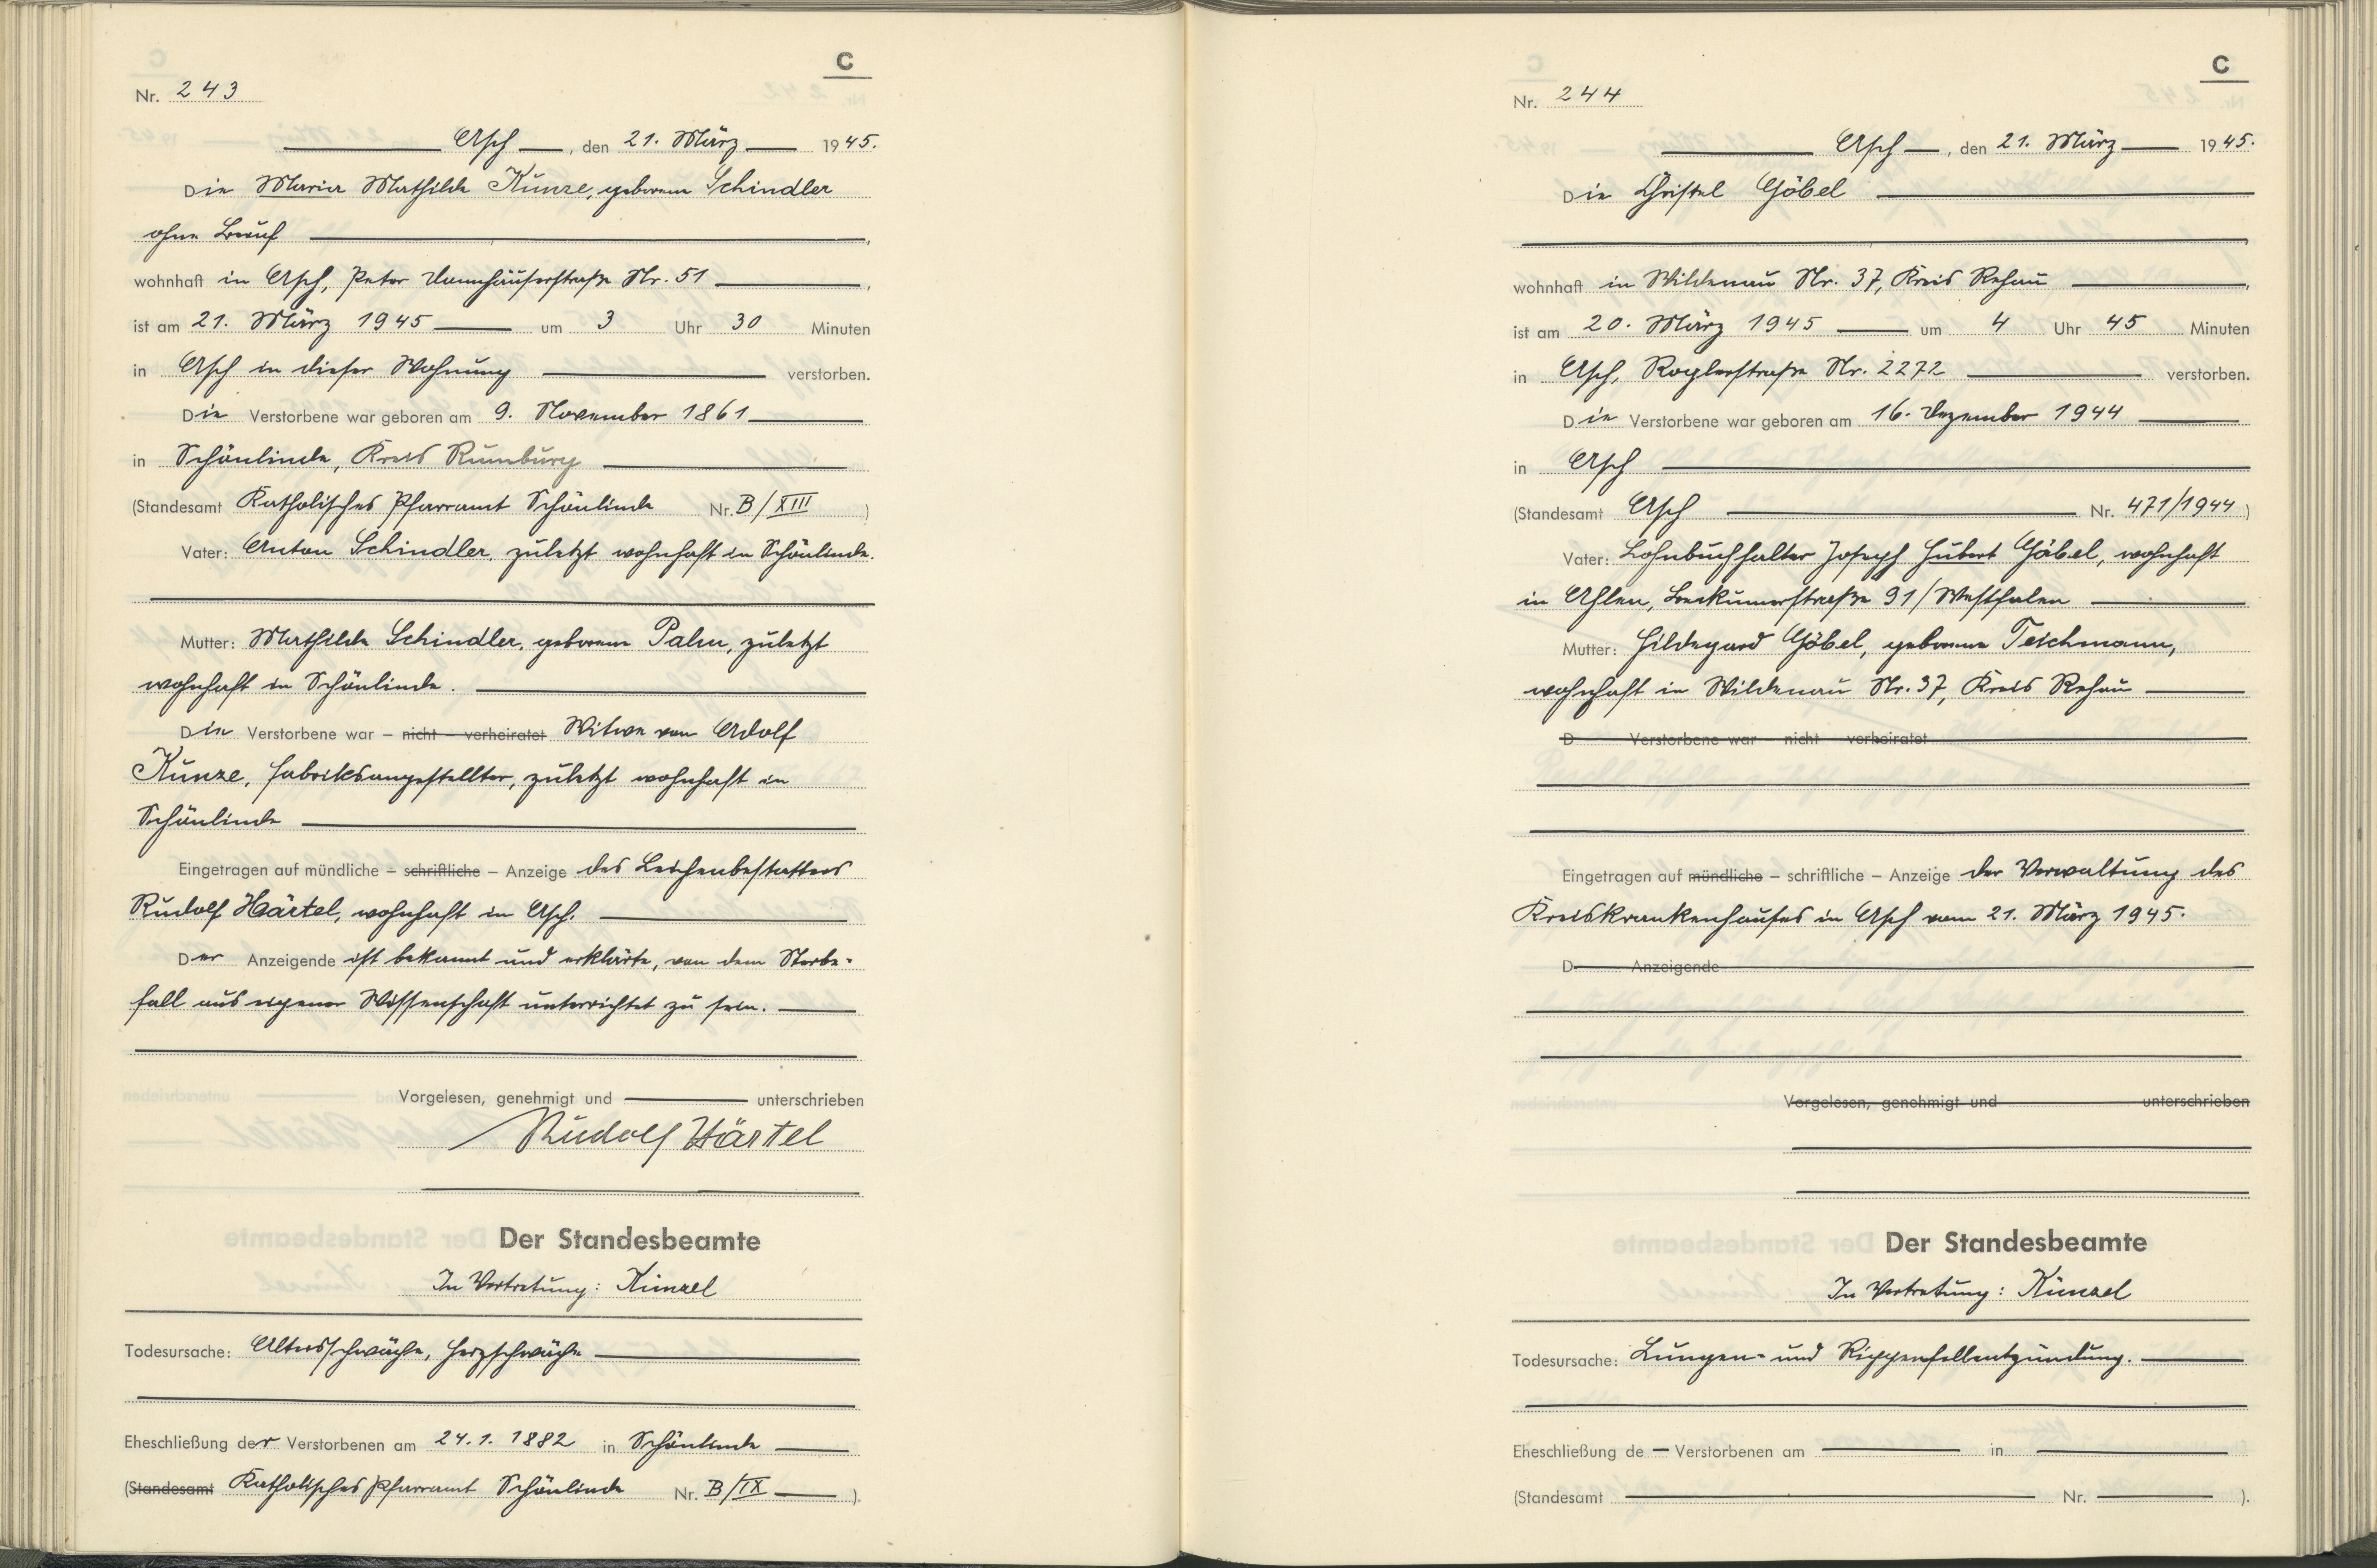 C
Nr. 243
Asch, den 21. März 1945.
Die Maria Mathilde Kunze, geborene Schindler
ohne Beruf,
wohnhaft in Asch, Peter Donnhäuserstraße Nr. 51,
ist am 21. März 1945 um 3 Uhr 30 Minuten
in Asch in dieser Wohnung verstorben.
Die Verstorbene war geboren am 9. November 1861
in Schönlinde, Kreis Rumburg
(Standesamt Katholisches Pfarramt Schönlinde Nr. B/XIII)
Vater: Anton Schindler, zuletzt wohnhaft in Schönlinde.
Mutter: Mathilde Schindler, geborene Palm, zuletzt
wohnhaft in Schönlinde.
Die Verstorbene war – nicht – verheiratet Witwe von Adolf
Kunze, Fabriksangestellter, zuletzt wohnhaft in
Schönlinde
Eingetragen auf mündliche – schriftliche – Anzeige des Leichenbestatters
Rudolf Härtel, wohnhaft in Asch.
Der Anzeigende ist bekannt und erklärte, von dem Sterbe-
fall aus eigener Wissenschaft unterrichtet zu sein.
Vorgelesen, genehmigt und unterschrieben
Rudolf Härtel
Der Standesbeamte
In Vertretung: Künzel
Todesursache: Altersschwäche, Herzschwäche
Eheschließung der Verstorbenen am 24.1.1882 in Schönlinde
(Standesamt Katholisches Pfarramt Schönlinde Nr. B/IX).
C
Nr. 244
Asch, den 21. März 1945.
Die Christel Göbel
wohnhaft in Wildenau Nr. 37, Kreis Rehau,
ist am 20. März 1945 um 4 Uhr 45 Minuten
in Asch, Roglerstraße Nr. 2272 verstorben.
Die Verstorbene war geboren am 16. Dezember 1944
in Asch
(Standesamt Asch Nr. 471/1944)
Vater: Lohnbuchhalter Joseph Hubert Göbel, wohnhaft
in Ahlen, Beckumerstraße 91/Westfalen
Mutter: Hildegard Göbel, geborene Teschmann,
wohnhaft in Wildenau Nr. 37, Kreis Rehau
D Verstorbene war – nicht – verheiratet
Eingetragen auf mündliche – schriftliche – Anzeige der Verwaltung des
Kreiskrankenhauses in Asch vom 21. März 1945.
D Anzeigende
Vorgelesen, genehmigt und unterschrieben
Der Standesbeamte
In Vertretung: Künzel
Todesursache: Lungen- und Rippenfellentzündung.
Eheschließung de Verstorbenen am in
(Standesamt Nr. ).